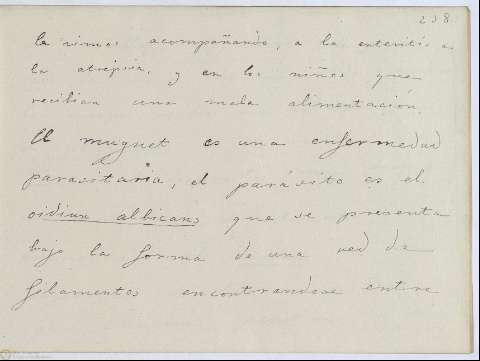 238
la vimos acompañando, a la enteritis a
la atrepsia, y en los niños que
recibian una mala alimentación.
El muguet es una enfermedad
parasitaria, el parásito es el
oidium albicans que se presenta
bajo la forma de una red de
felamentos encontrandose entre